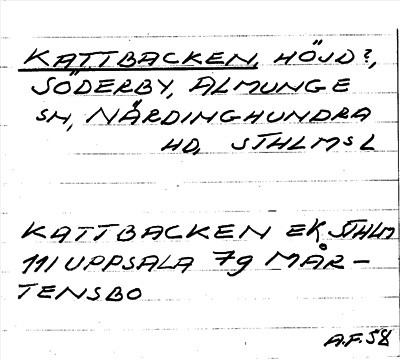 KATTBACKEN, HÖJD?,
SÖDERBY, ALMUNGE
SN, NÄRDINGHUNDRA
HD, STHLMS L
KATTBACKEN EK STHLM
111 UPPSALA 79 MÅR-
TENSBO
A.F. 58